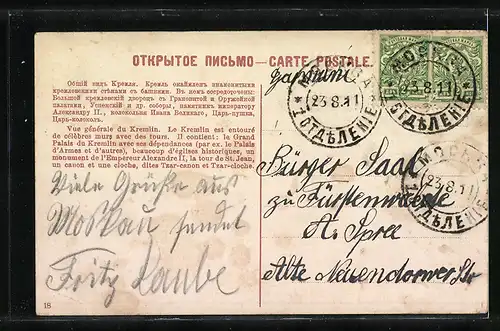 ОТКРЫТОЕ ПИСЬМО — CARTE POSTALE.
Общій видъ Кремля. Кремль окаймленъ знаменитыми
кремлевскими стѣнами съ башнями. Въ немъ сосредоточены:
Большой кремлевскій дворецъ съ Грановитой и Оружейной
палатами, Успенскій и др. соборы, памятникъ императору
Александру II, колокольня Ивана Великаго, Царь-пушка,
Царь-колоколъ.
Vue générale du Kremlin. Le Kremlin est entouré
de célèbres murs avec des tours. Il contient: la Grand
Palais du Kremlin avec ses dépendances (par ex. le Palais
d'Armes et d'autres), beaucoup d'églises historiques, un
monument de l'Empereur Alexandre II, la tour de St. Jean,
un canon et une cloche, dites Tsar-canon et Tsar-cloche.
Viele Grüße aus
Moskau sendet
Fritz Laube
18
МОСКВА
23.8.11
1 ОТДѢЛЕНІЕ
МОСКВА
23.8.11
1 ОТДѢЛЕНІЕ
МОСКВА
23.8.11
1 ОТДѢЛЕНІЕ
Bürger Saal
zu Fürstenwalde
A. Spree
Alte Neuendorwer Str